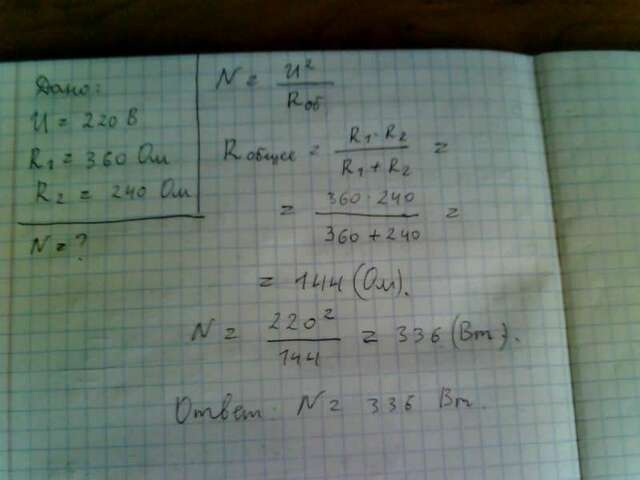 Дано:
U = 220 В
R₁ = 360 Ом
R₂ = 240 Ом
N = ?
N = U² / Rоб
Rобщее = R₁ · R₂ / R₁ + R₂ =
= 360 · 240 / 360 + 240 =
= 144 (Ом).
N = 220² / 144 = 336 (Вт).
Ответ: N = 336 Вт.